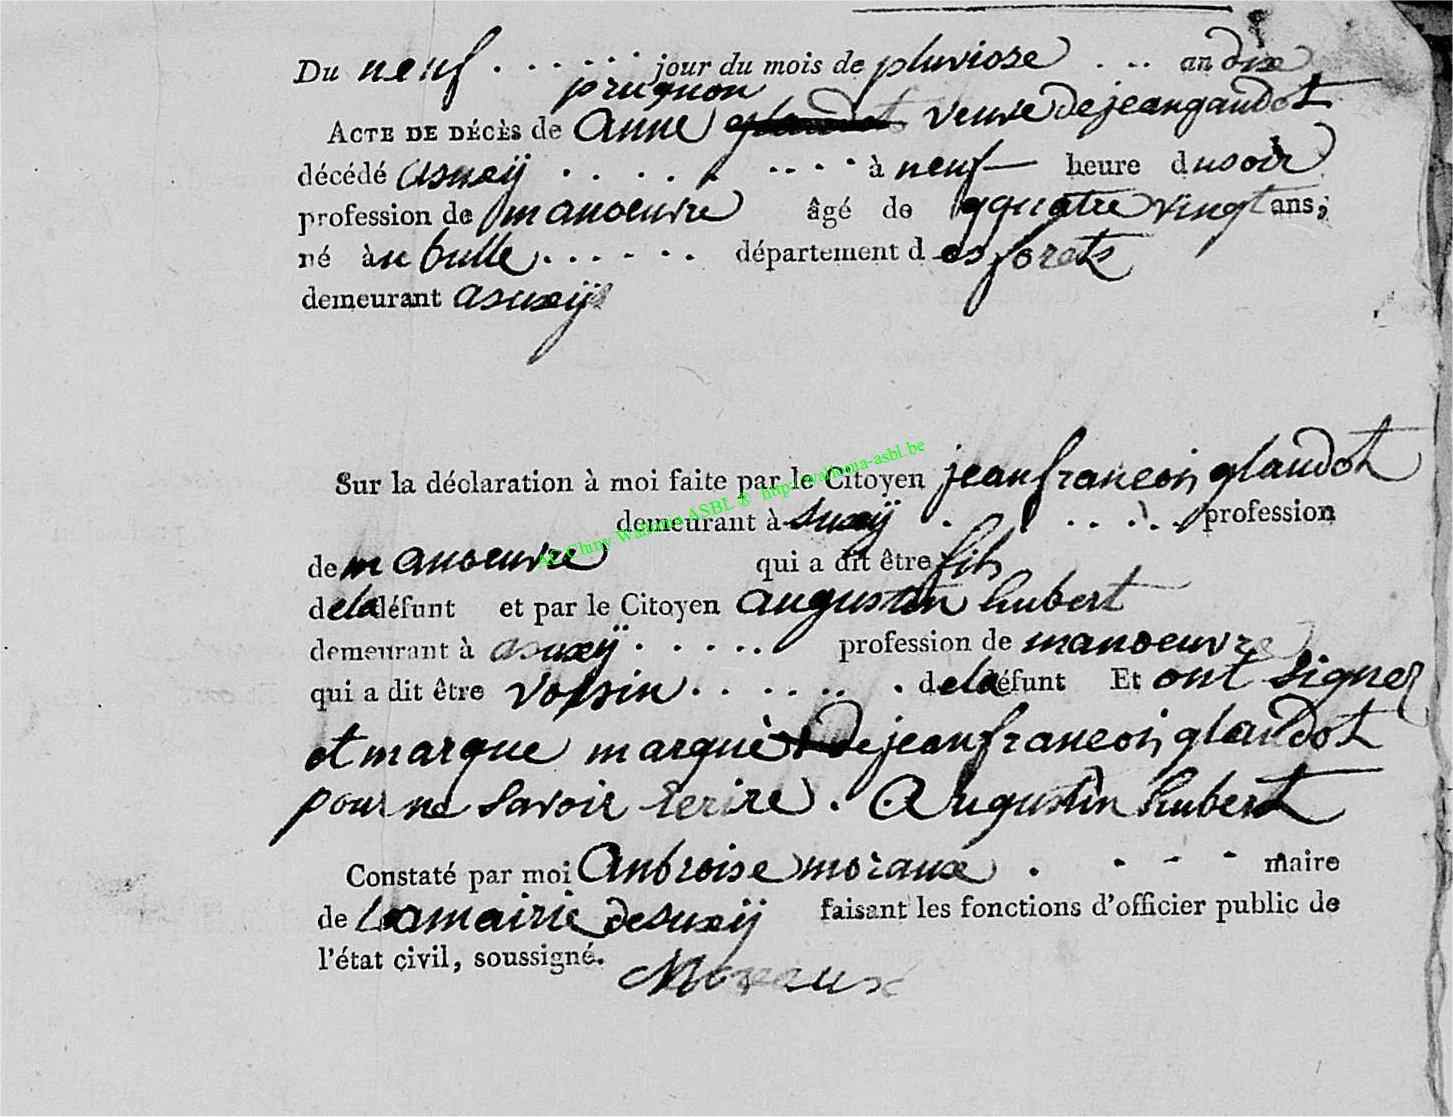 Du neuf . . . . . . jour du mois de pluviose . . . an dix
prugnon
ACTE DE DÉCÈS de Anne glaudot veuve de jean gaudot
décédé a suxÿ . . . . . . . . . à neuf heure du soir
profession de manoeuvre âgé de qquatre vingt ans,
né à n bulle . . . . . . département d es forets
demeurant a suxÿ
Sur la déclaration à moi faite par le Citoyen jean francois glaudot
demeurant à suxÿ . . . . . . profession
de manoeuvre qui a dit être fils
de la défunt et par le Citoyen augustin hubert
demeurant à a suxÿ . . . . . profession de manoeuvre
qui a dit être voissin . . . . . . de la défunt Et ont signer
et marque marquè de jean francois glaudot
pour ne savoir ecrire . Augustin hubert
Constaté par moi Anbroise moraux . . - - maire
de La mairie de suxÿ faisant les fonctions d'officier public de
l'état civil, soussigné.
Moraux